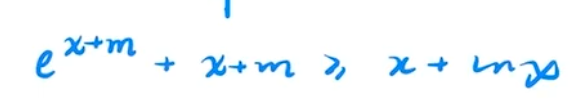 e^{x+m} + x+m ⩾ x + ln x